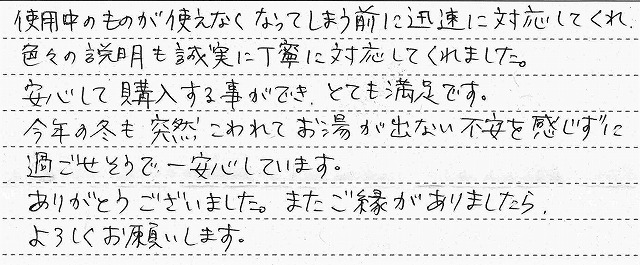 使用中のものが使えなくなってしまう前に迅速に対応してくれ、
色々の説明も誠実に丁寧に対応してくれました。
安心して購入する事ができ とても満足です。
今年の冬も 突然 こわれて お湯が出ない 不安を感じずに
過ごせそうで 一安心しています。
ありがとうございました。またご縁がありましたら、
よろしくお願いします。